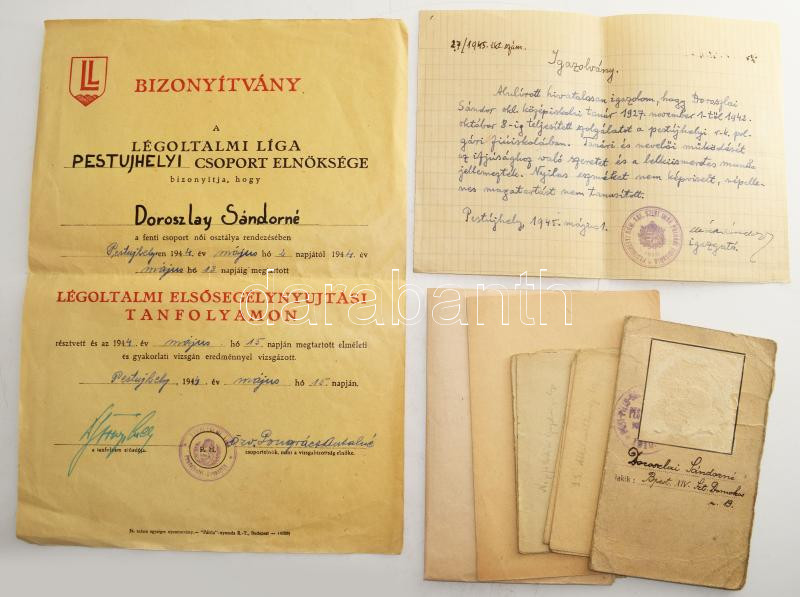 LL
BIZONYÍTVÁNY
A
LÉGOLTALMI LIGA
PESTUJHELYI CSOPORT ELNÖKSÉGE
bizonyitja, hogy
Doroszlay Sándorné
a fenti csoport női osztálya rendezésében
Pestujhelyen 1944. év május hó 2 napjától 1944 év
május hó 13 napjáig megtartott
LÉGOLTALMI ELSŐSEGÉLYNYUJTÁSI
TANFOLYAMON
résztvett és az 1944. év május hó 15. napján megtartott elméleti
és gyakorlati vizsgán eredménnyel vizsgázott.
Pestujhely, 1944 év május hó 15. napján.
P. H.
Dr. Pongrácz Antalné
a tanfolyam előadója.
csoportelnök, mint a vizsgabizottság elnöke.
27/1945. ikt. szám.
Igazolvány.
Alulírott hivatalosan igazolom, hogy Doroszlai
Sándor okl. középiskolai tanár 1927. november 1-től 1942.
október 8-ig teljesített szolgálatot a pestújhelyi r. k. pol-
gári fiúiskolában. Tanári és nevelői működését
az ifjúsághoz való szeretet és a lelkiismeretes munka
jellemezték. Nyilas eszméket nem képviselt, népelle-
nes magatartást nem tanusított.
Pestújhely, 1945. május 1.
igazgató.
Doroszlai Sándorné
lakik: Bpest. XIV. Szt. Domokos
u. 13.
darabanth